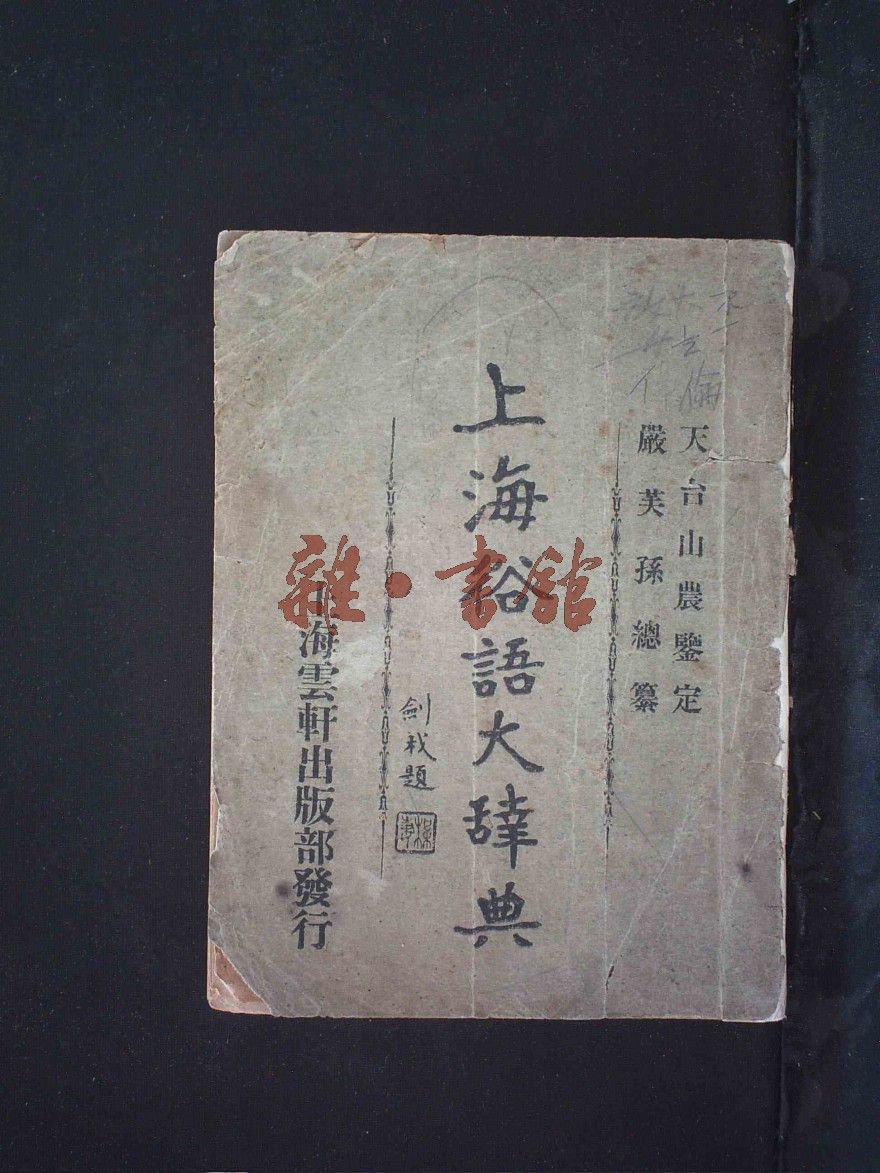 天台山農鑒定
嚴芙孫總纂
上海俗語大辭典
劍我題
上海雲軒出版部發行
雜·書館